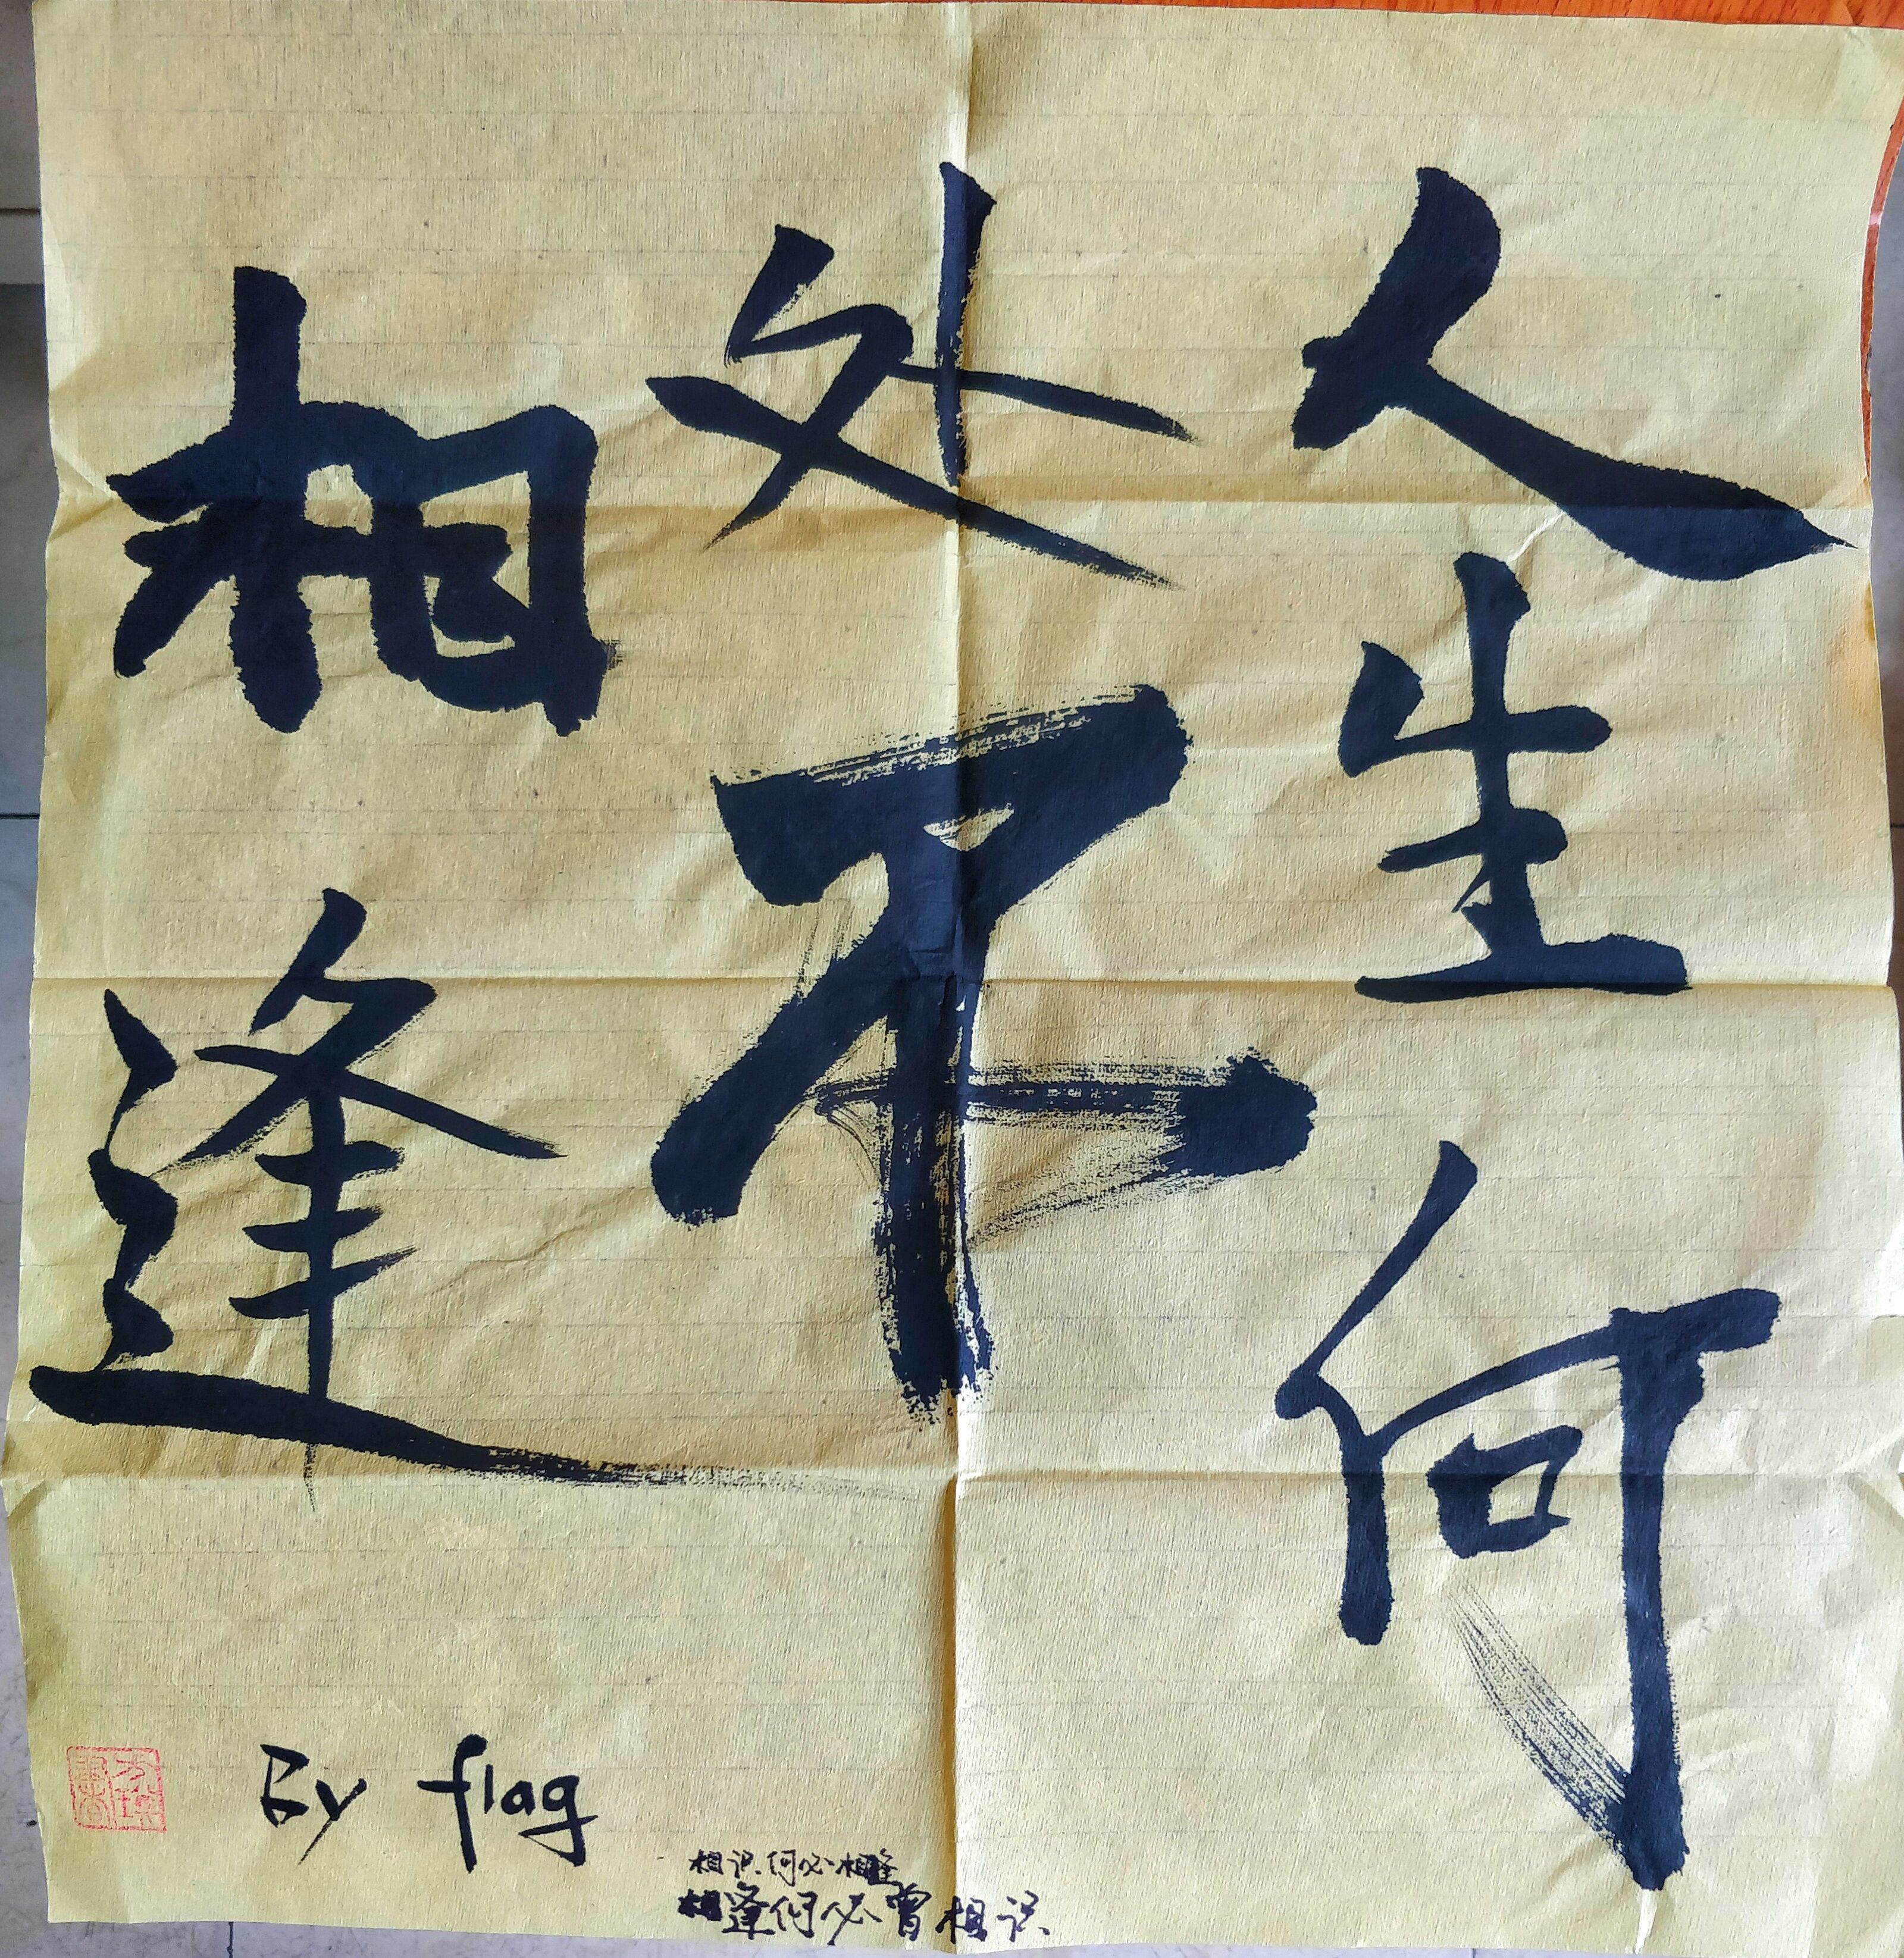 人生何
处不
相逢
By flag
相识何必相逢
相逢何必曾相识